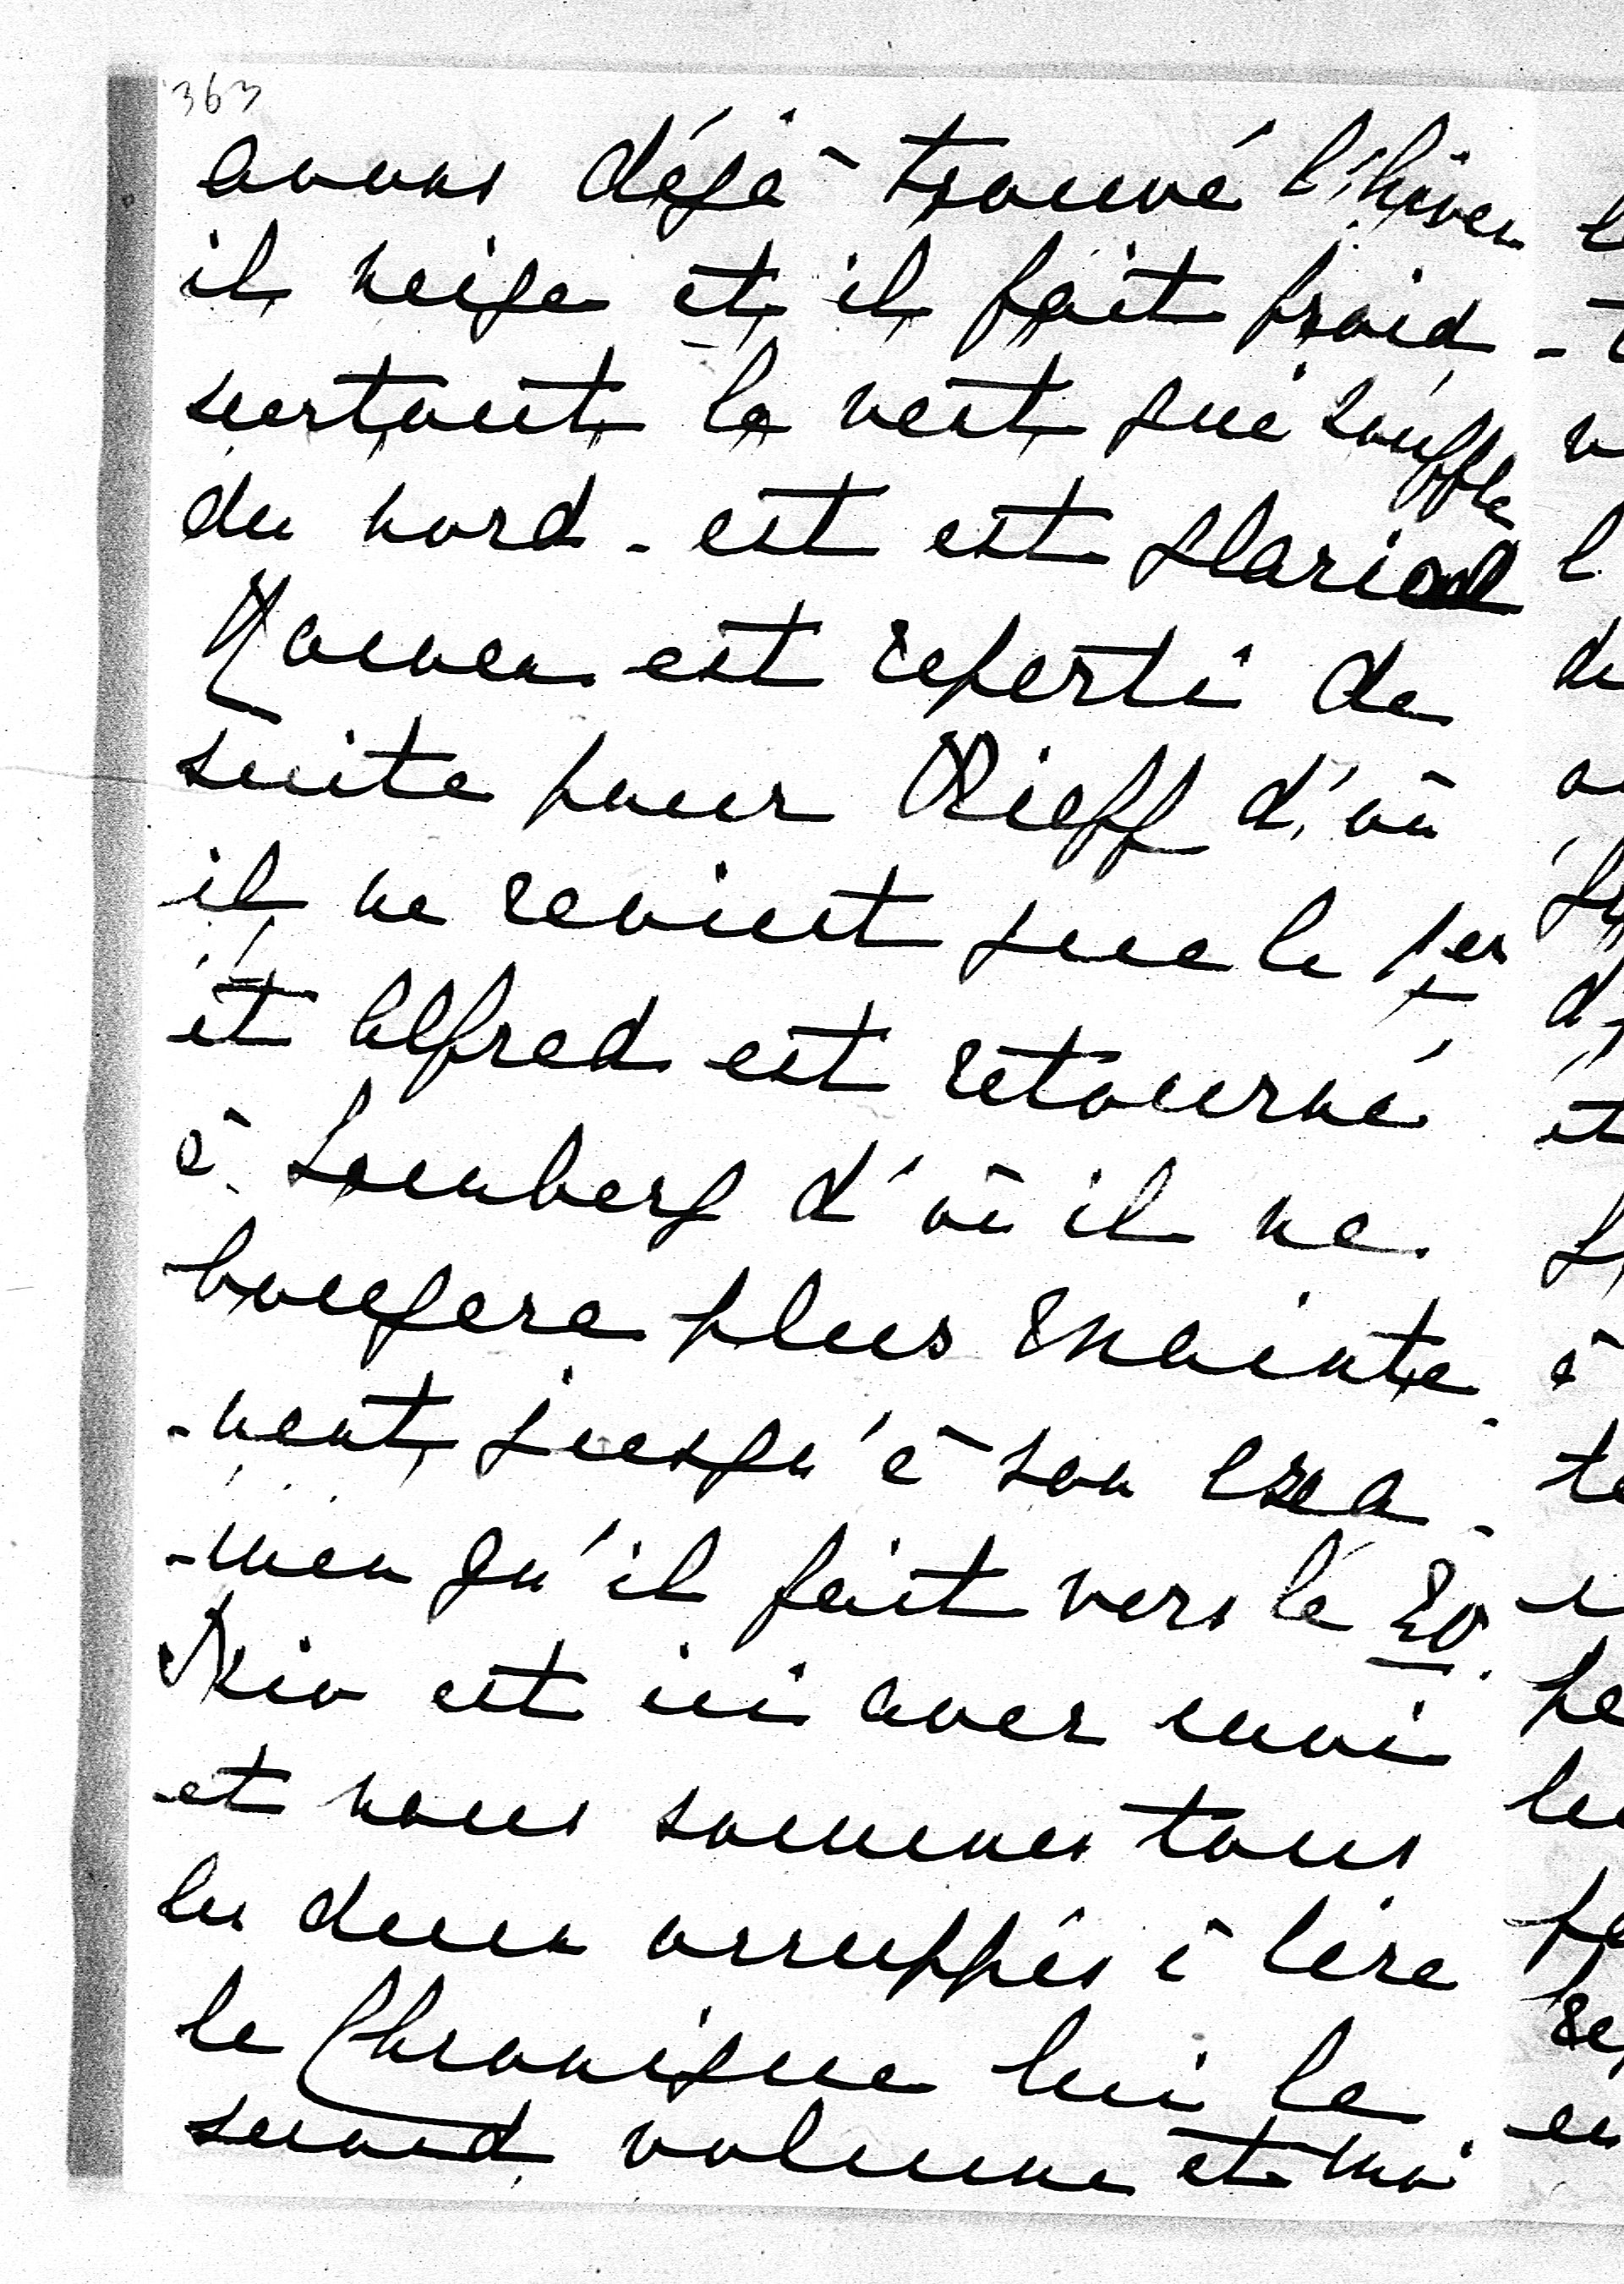 363
avons déjà trouvé l'hiver
il neige et il fait froid -
surtout le vent qui souffle
du nord - est est glacial
Roman est reparti de
suite pour Kieff d'où
il ne revient que le 1er
et Alfred est retourné
à Lemberg d'où il ne
bougera plus mainte-
-nant jusqu'à son exa-
-men qu'il fait vers le 20.
est ici avec moi
et nous sommes tous
les deux occuppés à lire
le Chronique lui le
second volume et moi